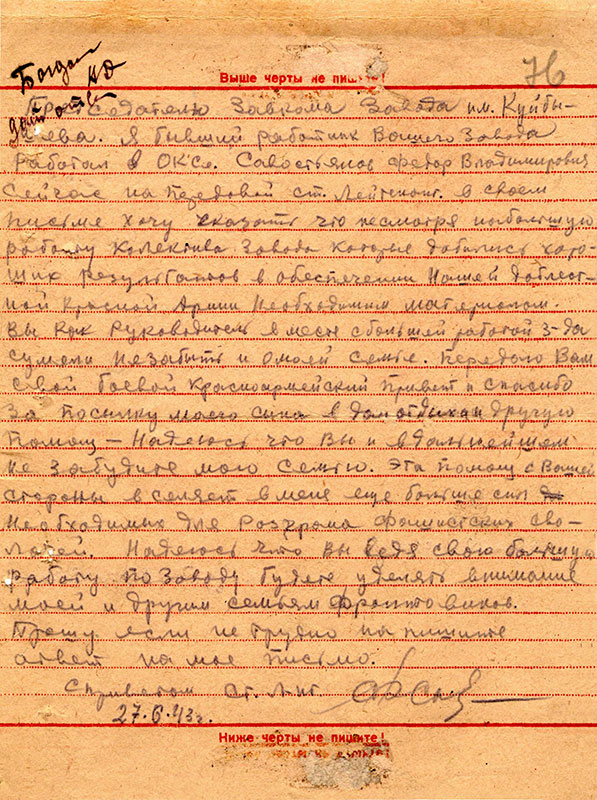 Богдан
НО
76
Выше черты не пишите!
Председателю Завкома Завода им. Куйбы-
шева. Я бывший работник Вашего Завода
работал в ОКСе. Савостьянов Федор Владимирович
Сейчас на передовой ст. Лейтенант. в своем
письме хочу сказать что несмотря на большую
работу Колектива Завода которые добились хоро-
ших результатов в обеспечении Нашей доблест-
ной Красной Армии Необходимым материалом.
Вы как Руководитель вместе с большей работой З-да
сумели Незабыть и омоей семье. Передаю Вам
Свой боевой Красноармейский Привет и спасибо
За посылку моего сына в дом отдыха и другую
помощ – Надеюсь что Вы и вдальнейшем
не забудите мою Семью. Эта помощ с Вашей
стороны вселяет в меня еще больше сил
Необходимых для Розгрома фашистских сво-
лочей. Надеюсь что Вы ведя свою большую
работу по Заводу будете уделять внимание
моей и другим семьям фронтовиков.
Прошу если не трудно на пишите
ответ на мое письмо.
С приветом Ст. Л-нт
27.6.43г.
Ниже черты не пишите!